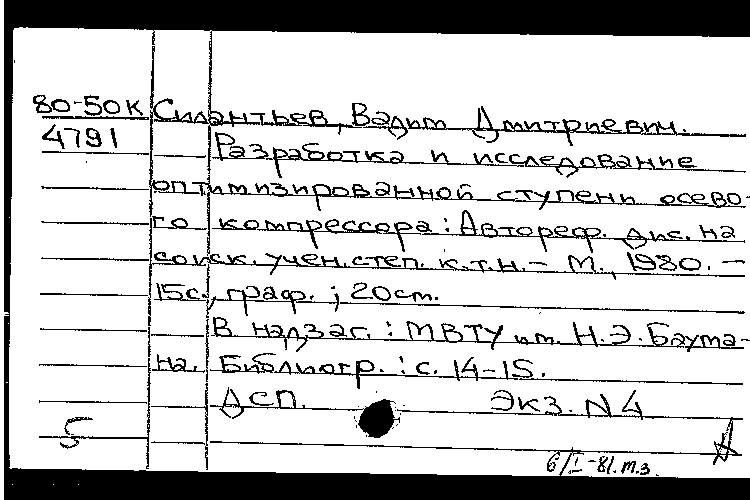 80-50К Силантьев, Вадим Дмитриевич.
4791 Разработка и исследование
оптимизированной ступени осево-
го компрессора: Автореф. дис. на
соиск. учен. степ. к.т.н. – М., 1980. –
15с., граф. ; 20см.
В надзаг. : МВТУ им. Н.Э. Баума-
на. Библиогр. : с. 14-15.
ДСП. Экз. N 4
5
6/I-81. т.з.